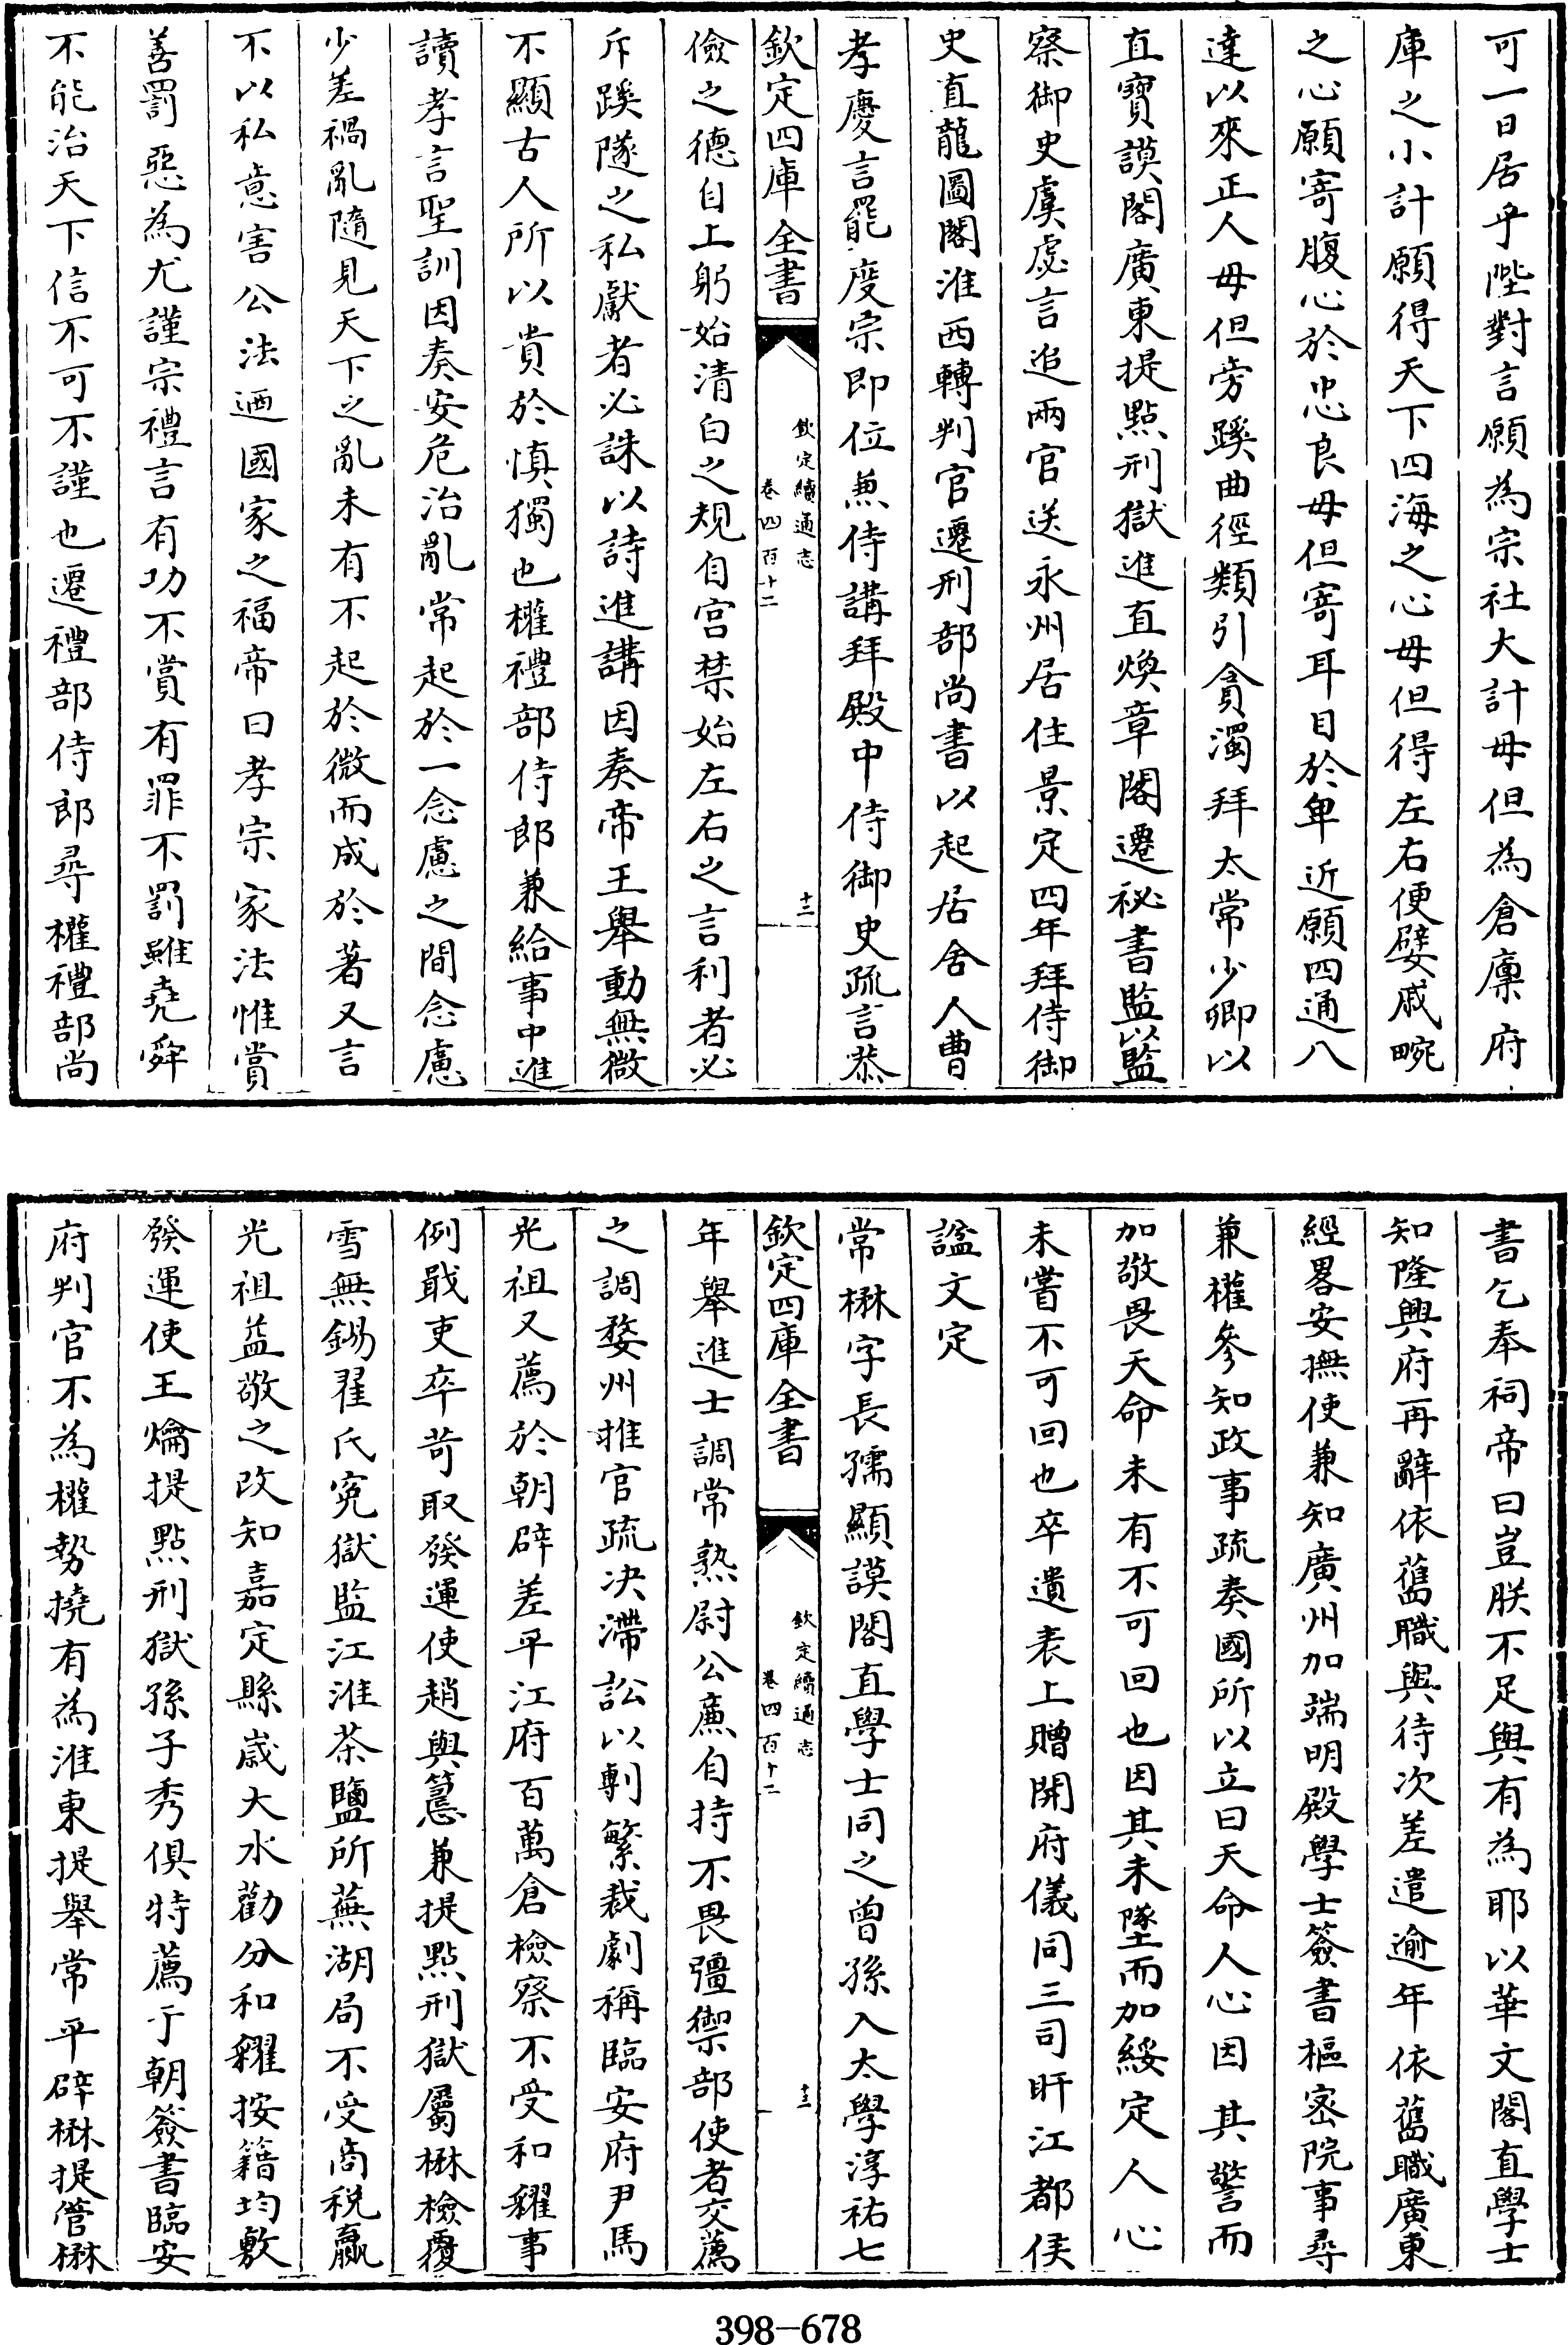 可一日居乎陛對言願為宗社大計毋但為倉廩府
庫之小計願得天下四海之心毋但得左右便嬖戚畹
之心願寄腹心於忠良毋但寄耳目於卑近願四通八
達以來正人毋但旁蹊曲徑類引貪濁拜太常少卿以
直寶謨閣廣東提點刑獄進直煥章閣遷秘書監以監
察御史虞慮言追兩官送永州居住景定四年拜侍御
史直龍圖閣淮西轉判官遷刑部尚書以起居舍人曹
孝慶言罷度宗即位兼侍講拜殿中侍御史疏言恭
欽定四庫全書
欽定續通志
卷四百十二
十二
儉之德自上躬始清白之規自宫禁始左右之言利者必
斥蹊隧之私獻者必誅以詩進講因奏帝王舉動無微
不顯古人所以貴於慎獨也權禮部侍郎兼給事中進
讀孝言聖訓因奏安危治亂常起於一念慮之間念慮
少差禍亂隨見天下之亂未有不起於微而成於著又言
不以私意害公法迺國家之福帝曰孝宗家法惟賞
善罰惡為尤謹宗禮言有功不賞有罪不罰雖堯舜
不能治天下信不可不謹也遷禮部侍郎尋權禮部尚
書乞奉祠帝曰豈朕不足與有為耶以華文閣直學士
知隆興府再辭依舊職與待次差遣逾年依舊職廣東
經畧安撫使兼知廣州加端明殿學士簽書樞密院事尋
兼權參知政事疏奏國所以立曰天命人心因其警而
加敬畏天命未有不可回也因其未墜而加綏定人心
未嘗不可回也卒遺表上贈開府儀同三司盱江郡侯
諡文定
常楙字長孺顯謨閣直學士同之曾孫入太學淳祐七
欽定四庫全書
欽定續通志
卷四百十二
十三
年舉進士調常熟尉公廉自持不畏彊禦部使者交薦
之調婺州推官疏決滯訟以剸繁裁劇稱臨安府尹馬
光祖又薦於朝辟差平江府百萬倉檢察不受和糴事
例戢吏卒苛取發運使趙與𥲅兼提點刑獄屬楙檢覆
雪無錫翟氏寃獄監江淮茶鹽所蕪湖局不受商税贏
光祖益敬之改知嘉定縣歲大水勸分和糴按籍均敷
發運使王爚提點刑獄孫子秀俱特薦于朝簽書臨安
府判官不為權勢撓有為淮東提舉常平辟楙提管楙
398-678